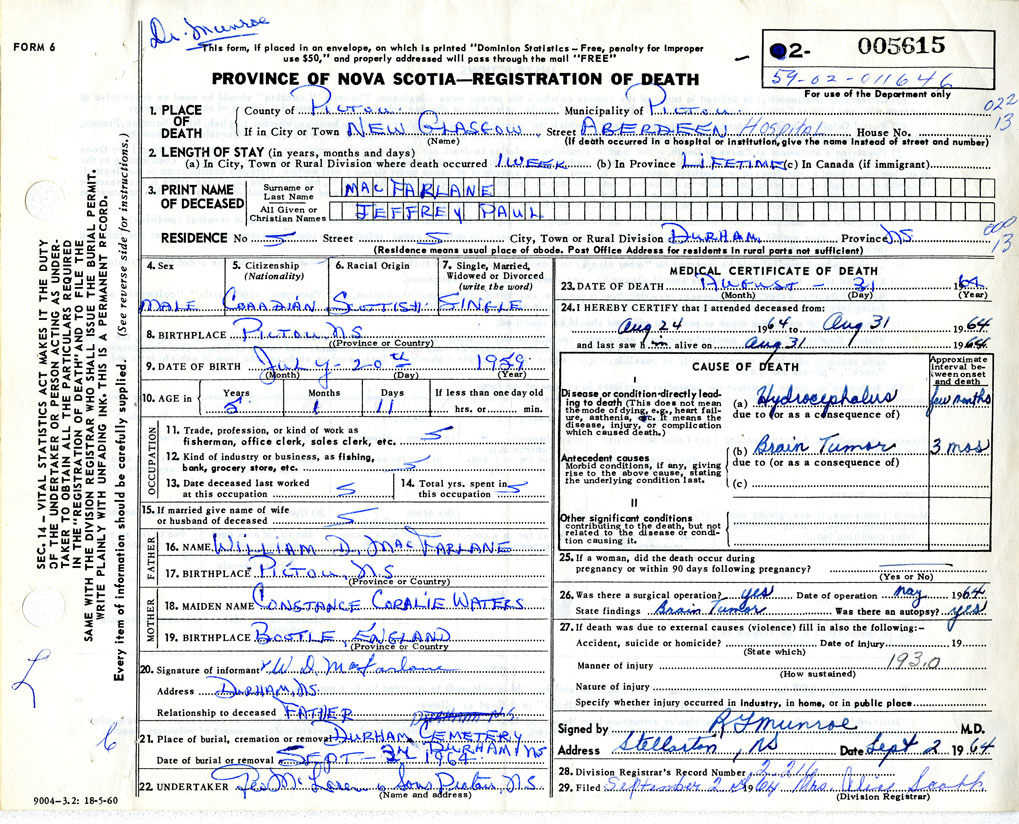 Dr. Munroe
FORM 6
This form, if placed in an envelope, on which is printed "Dominion Statistics – Free, penalty for improper
use $50," and properly addressed will pass through the mail "FREE"
PROVINCE OF NOVA SCOTIA—REGISTRATION OF DEATH
2- 005615
59-02-011646
For use of the Department only
022
13
1. PLACE OF DEATH
County of Pictou Municipality of Pictou
If in City or Town New Glasgow, Street Aberdeen Hospital House No.
(Name) (If death occurred in a hospital or institution, give the name instead of street and number)
2. LENGTH OF STAY (in years, months and days)
(a) In City, Town or Rural Division where death occurred 1 week (b) In Province Lifetime (c) In Canada (if immigrant)
3. PRINT NAME OF DECEASED
Surname or Last Name MacFARLANE
All Given or Christian Names JEFFREY PAUL
RESIDENCE No Street City, Town or Rural Division Durham, Province NS
000
13
(Residence means usual place of abode. Post Office Address for residents in rural parts not sufficient)
SEC. 14 – VITAL STATISTICS ACT MAKES IT THE DUTY
OF THE UNDERTAKER OR PERSON ACTING AS UNDER-
TAKER TO OBTAIN ALL THE PARTICULARS REQUIRED
IN THE "REGISTRATION OF DEATH" AND TO FILE THE
SAME WITH THE DIVISION REGISTRAR WHO SHALL ISSUE THE BURIAL PERMIT.
WRITE PLAINLY WITH UNFADING INK. THIS IS A PERMANENT RECORD.
Every item of information should be carefully supplied. (See reverse side for instructions.)
4. Sex
Male
5. Citizenship (Nationality)
Canadian
6. Racial Origin
Scottish
7. Single, Married, Widowed or Divorced (write the word)
Single
8. BIRTHPLACE Pictou, N.S
(Province or Country)
9. DATE OF BIRTH July - 20th 1959
(Month) (Day) (Year)
10. AGE in Years Months Days If less than one day old
5 1 11 hrs. or min.
OCCUPATION
11. Trade, profession, or kind of work as
fisherman, office clerk, sales clerk, etc.
12. Kind of industry or business, as fishing,
bank, grocery store, etc.
13. Date deceased last worked
at this occupation
14. Total yrs. spent in
this occupation
15. If married give name of wife
or husband of deceased
FATHER
16. NAME William D. MacFarlane
17. BIRTHPLACE Pictou, NS
(Province or Country)
MOTHER
18. MAIDEN NAME Constance Coralie Waters
19. BIRTHPLACE Bootle, England
(Province or Country
20. Signature of informant W. D. MacFarlane
Address Durham, NS.
Relationship to deceased Father
21. Place of burial, cremation or removal Durham Cemetery
Durham, NS
Date of burial or removal Sept - 2nd 1964
22. UNDERTAKER Geo McLaren & Sons Pictou, N.S.
(Name and address)
9004–3.2: 18-5-60
MEDICAL CERTIFICATE OF DEATH
23. DATE OF DEATH August - 31 1964
(Month) (Day) (Year)
24. I HEREBY CERTIFY that I attended deceased from:
Aug 24 1964 to Aug 31 1964
and last saw him alive on Aug 31 1964
CAUSE OF DEATH
Approximate interval between onset and death
I
Disease or condition directly lead-
ing to death (This does not mean
the mode of dying, e.g., heart fail-
ure, asthenia, etc. It means the
disease, injury, or complication
which caused death.)
(a) Hydrocephalus few months
due to (or as a consequence of)
Antecedent causes
Morbid conditions, if any, giving
rise to the above cause, stating
the underlying condition last.
(b) Brain Tumor 3 mos
due to (or as a consequence of)
(c)
II
Other significant conditions
contributing to the death, but not
related to the disease or condi-
tion causing it.
25. If a woman, did the death occur during
pregnancy or within 90 days following pregnancy?
(Yes or No)
26. Was there a surgical operation? yes Date of operation May 1964
State findings Brain Tumor Was there an autopsy? yes
27. If death was due to external causes (violence) fill in also the following:–
Accident, suicide or homicide? Date of injury 19
(State which)
Manner of injury 193.0
(How sustained)
Nature of injury
Specify whether injury occurred in industry, in home, or in public place
Signed by R F Munroe M.D.
Address Stellarton, NS Date Sept 2 1964
28. Division Registrar's Record Number
29. Filed September 2nd 1964 Mrs. Alice Scott
(Division Registrar)